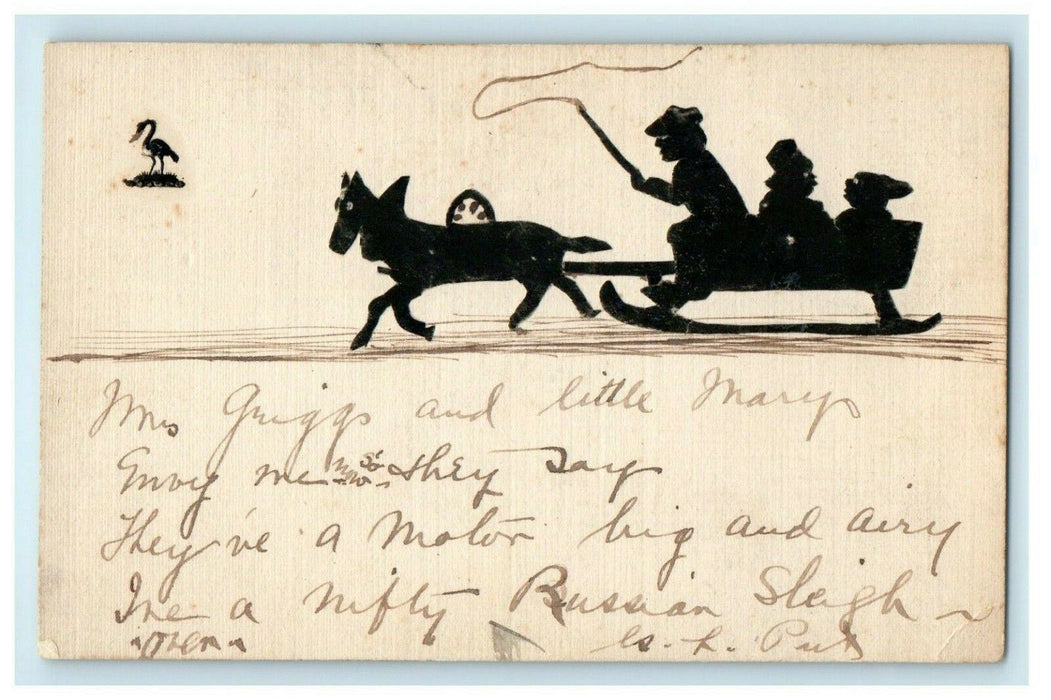 Mrs Griggs and little Mary
Envy me so they say
They've a Motor big and airy
I've a nifty Russian Sleigh